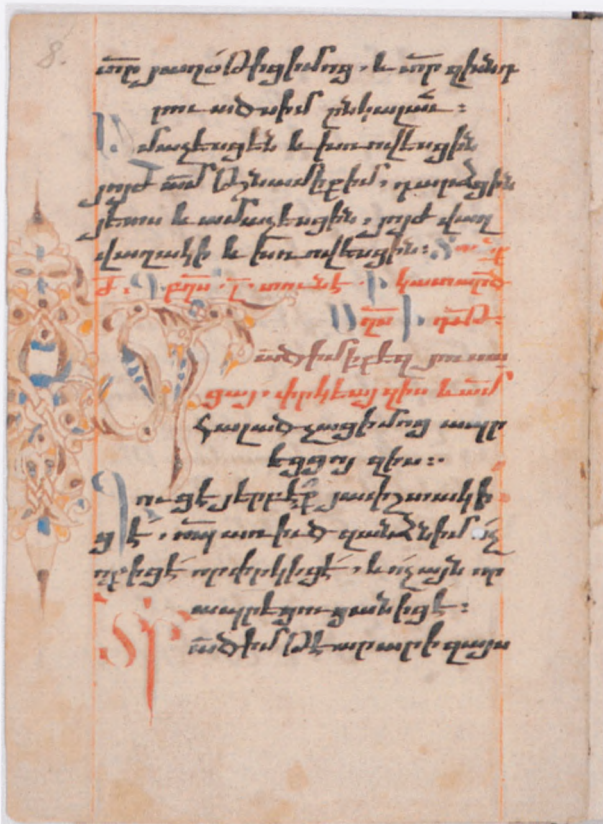 8.
տր յաղօթից իմոց, և տր զխնդ
րուածս իմ ընկալաւ։
Ամաչեսցեն և խռովեսցին
յոյժ ամ թշնամիք իմ, դարձցին
յետս և ամաչեսցեն, յոյժ վաղ
վաղակի և խռովեսցին։
Ի կատարած
Ի
Տր ած իմ ի քեզ յուսա
ցայ, փրկեայ զիս և ամ
հալածչաց իմոց ապր
եցոյ զիս։
Զուցէ յերբէք յափշտակի
ցէ, որպ առիւծ զանձն իմ, ոչ
ոք իցէ որ փրկիցէ, և ոչ այն որ
ապրեցուցանիցէ։
Տր ած իմ թէ արարի զայս